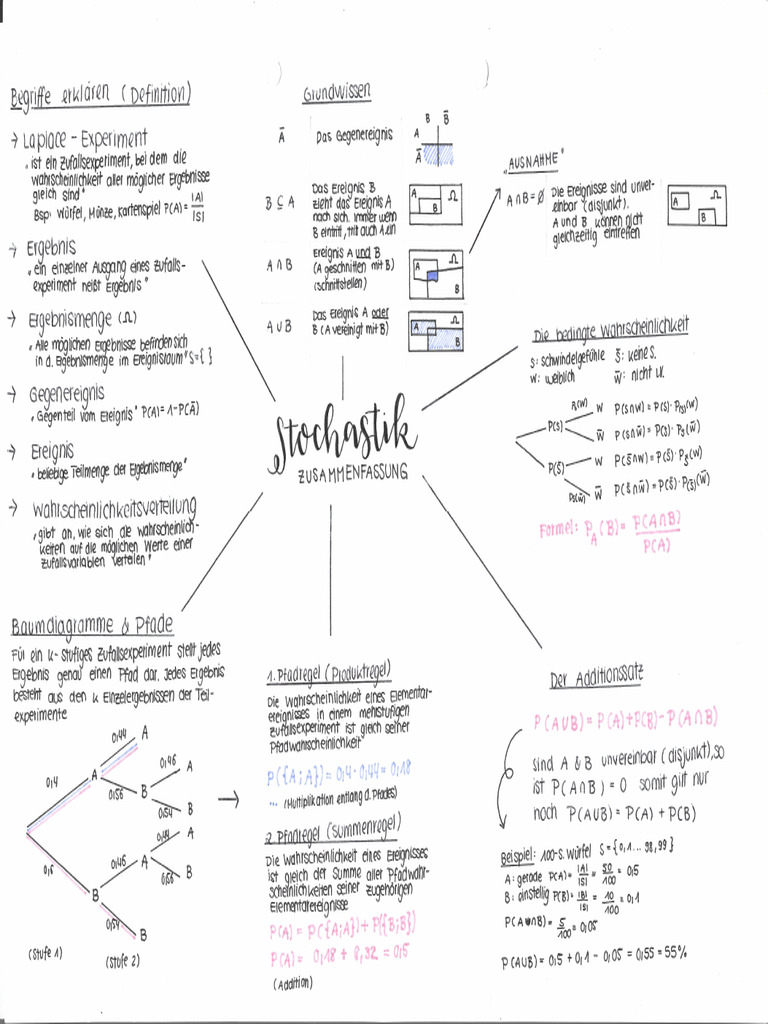 Begriffe erklären (Definition)
→ Laplace - Experiment
"ist ein Zufallsexperiment, bei dem die
Wahrscheinlichkeit aller möglicher Ergebnisse
gleich sind"
Bsp: Würfel, Münze, Kartenspiel P(A) = |A|/|S|
→ Ergebnis
"ein einzelner Ausgang eines Zufalls-
experiment heißt Ergebnis"
→ Ergebnismenge (Ω)
"Alle möglichen Ergebnisse befinden sich
in d. Ergebnismenge im Ereignisraum" S = { }
→ Gegenereignis
"Gegenteil vom Ereignis" P(A) = 1 - P(Ā)
→ Ereignis
"beliebige Teilmenge der Ergebnismenge"
→ Wahrscheinlichkeitsverteilung
"gibt an, wie sich die Wahrscheinlich-
keiten auf die möglichen Werte einer
Zufallsvariablen verteilen"
Grundwissen
Ā Das Gegenereignis
B B̄
A
Ā
B ⊆ A Das Ereignis B
zieht das Ereignis A
nach sich. Immer wenn
B eintritt, tritt auch A ein
A B Ω
A ∩ B Ereignis A und B
(A geschnitten mit B)
(Schnittstellen)
A B Ω
A ∪ B Das Ereignis A oder
B (A vereinigt mit B)
A B Ω
"AUSNAHME"
A ∩ B = ∅ Die Ereignisse sind unver-
einbar (disjunkt).
A und B können nicht
gleichzeitig eintreffen
A B
Stochastik
ZUSAMMENFASSUNG
Die bedingte Wahrscheinlichkeit
S: Schwindelgefühle S̄: keine S.
W: weiblich W̄: nicht W.
P(S) W P(S∩W) = P(S) · P_(S)(W)
W̄ P(S∩W̄) = P(S) · P_S(W̄)
P(S̄) W P(S̄∩W) = P(S̄) · P_S̄(W)
W̄ P(S̄∩W̄) = P(S̄) · P_(S̄)(W̄)
Formel: P_A(B) = P(A∩B)/P(A)
Baumdiagramme & Pfade
Für ein k-stufiges Zufallsexperiment stellt jedes
Ergebnis genau einen Pfad dar. Jedes Ergebnis
besteht aus den k Einzelergebnissen der Teil-
experimente
0,44 A
0,4 A 0,46 A
0,56 B
0,54 B
0,44 A
0,46 A
0,6 B 0,56 B
0,54 B
(Stufe 1) (Stufe 2)
→
1. Pfadregel (Produktregel)
Die Wahrscheinlichkeit eines Elementar-
ereignisses in einem mehrstufigen
Zufallsexperiment ist gleich seiner
Pfadwahrscheinlichkeit
P({A;A}) = 0,4 · 0,44 = 0,18
... (Multiplikation entlang d. Pfades)
2. Pfadregel (Summenregel)
Die Wahrscheinlichkeit eines Ereignisses
ist gleich der Summe aller Pfadwahr-
scheinlichkeiten seiner zugehörigen
Elementarereignisse
P(A) = P({A;A}) + P({B;B})
P(A) = 0,18 + 0,32 = 0,5
(Addition)
Der Additionssatz
P(A∪B) = P(A) + P(B) - P(A∩B)
sind A & B unvereinbar (disjunkt), so
ist P(A∩B) = 0 somit gilt nur
noch P(A∪B) = P(A) + P(B)
Beispiel: 100-S. Würfel S = {0,1 ... 98,99}
A: gerade P(A) = |A|/|S| = 50/100 = 0,5
B: einstellig P(B) = |B|/|S| = 10/100 = 0,1
P(A∩B) = 5/100 = 0,05
P(A∪B) = 0,5 + 0,1 - 0,05 = 0,55 = 55%